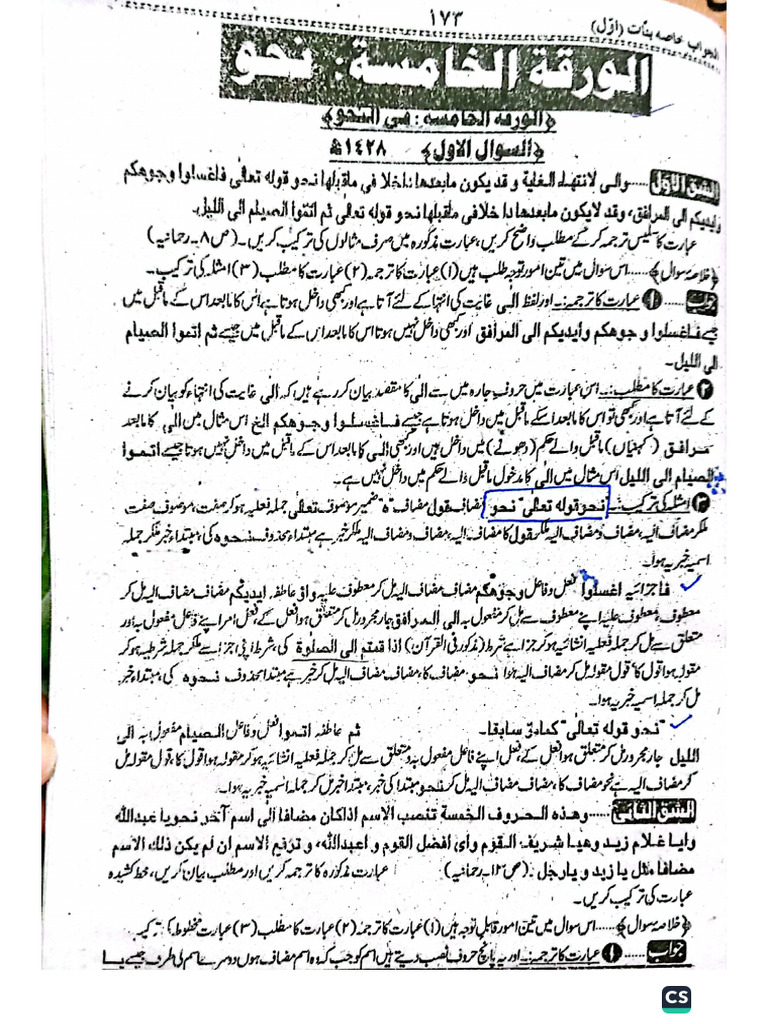 الجواب خاصہ بنات (اوّل)
۱۷۳
الورقة الخامسة: نحو
﴿الورقة الخامسة: فی النحو﴾
﴿السوال الاول﴾ ۱۴۲۸ھ
الشق الاوّل ...... والی لانتهاء الغایة و قد یکون مابعدها داخلا فی ماقبلها نحو قوله تعالٰی فاغسلوا وجوهکم
وایدیکم الی المرافق، وقد لایکون مابعدها داخلا فی ماقبلها نحو قوله تعالٰی ثم اتموا الصیام الی اللیل۔
عبارت کا سلیس ترجمہ کر کے مطلب واضح کریں، عبارت مذکورہ میں صرف مثالوں کی ترکیب کریں۔ (ص۸۔ رحمانیہ)
﴿خلاصہ سوال﴾ ...... اس سوال میں تین امور توجہ طلب ہیں (۱) عبارت کا ترجمہ (۲) عبارت کا مطلب (۳) امثلہ کی ترکیب۔
جواب ...... ❶ عبارت کا ترجمہ:۔ اور لفظ الی غایت کی انتہا کے لئے آتا ہے اور کبھی داخل ہوتا ہے اس کا مابعد اس کے ماقبل میں
جیسے فاغسلوا وجوهکم وایدیکم الی المرافق اور کبھی داخل نہیں ہوتا اس کا مابعد اس کے ماقبل میں جیسے ثم اتموا الصیام
الی اللیل۔
❷ عبارت کا مطلب:۔ اس عبارت میں حروف جارہ میں سے الٰی کا مقصد بیان کر رہے ہیں کہ الی غایت کی انتہاء کو بیان کرنے
کے لئے آتا ہے اور کبھی تو اس کا مابعد اسکے ماقبل میں داخل ہوتا ہے جیسے فاغسلوا وجوهکم الخ اس مثال میں الی کا مابعد
مرافق (کہنیاں) ماقبل والے حکم (دھونے) میں داخل ہیں اور کبھی الٰی کا مابعد اس کے ماقبل میں داخل نہیں ہوتا جیسے اتموا
الصیام الی اللیل اس مثال میں الٰی کا مدخول ماقبل والے حکم میں داخل نہیں ہے۔
❸ امثلہ کی ترکیب:۔ نحو قوله تعالٰی "نحو" مضاف قول مضاف "ہ" ضمیر موصوف تعالٰی جملہ فعلیہ ہو کر صفت، موصوف صفت
ملکر مضاف الیہ، مضاف و مضاف الیہ ملکر قول کا مضاف الیہ، مضاف و مضاف الیہ ملکر خبر ہے مبتداء محذوف نحوہ کی، مبتداء خبر ملکر جملہ
اسمیہ خبریہ ہوا۔
فا جزائیہ اغسلوا فعل و فاعل وجوهکم مضاف مضاف الیہ مل کر معطوف علیہ واؤ عاطفہ ایدیکم مضاف مضاف الیہ مل کر
معطوف، معطوف علیہ اپنے معطوف سے مل کر مفعول بہ الی المرافق جار مجرور مل کر متعلق ہوا فعل کے، فعل امر اپنے فاعل مفعول بہ اور
متعلق سے مل کر جملہ فعلیہ انشائیہ ہو کر جزا ہے شرط (مذکور فی القرآن) اذا قمتم الی الصلٰوة کی، شرط اپنی جزا سے ملکر جملہ شرطیہ ہو کر
مقولہ ہوا قول کا قول مقولہ مل کر مضاف الیہ ہوا نحو مضاف کا، مضاف مضاف الیہ مل کر خبر ہے مبتدا محذوف نحوہ کی، مبتداء خبر
مل کر جملہ اسمیہ خبریہ ہوا۔
"نحو قوله تعالٰی" کمامرّ سابقا۔ ثم عاطفہ اتموا فعل وفاعل الصیام مفعول بہ الی
اللیل جار مجرور مل کر متعلق ہوا فعل کے، فعل اپنے فاعل مفعول بہ و متعلق سے مل کر جملہ فعلیہ انشائیہ ہو کر مقولہ ہوا قول کا، قول مقولہ مل
کر مضاف الیہ ہے نحو مضاف کا، مضاف مضاف الیہ مل کر نحو مبتدا کی خبر، مبتدا خبر مل کر جملہ اسمیہ خبریہ ہوا۔
الشق الثانی ...... وهذه الحروف الخمسة تنصب الاسم اذاکان مضافا الی اسم آخر نحو یا عبدالله
وایا غلام زید وهیا شریف القوم وای افضل القوم و اعبدالله، و ترفع الاسم ان لم یکن ذلك الاسم
مضافا مثل یا زید و یا رجل: (ص۱۲۔ رحمانیہ) عبارت مذکورہ کا ترجمہ کریں اور مطلب بیان کریں، خط کشیدہ
عبارت کی ترکیب کریں۔
﴿خلاصہ سوال﴾ ...... اس سوال میں تین امور قابل توجہ ہیں (۱) عبارت کا ترجمہ (۲) عبارت کا مطلب (۳) عبارت مخطوط کی ترکیب
جواب ...... ❶ عبارت کا ترجمہ:۔ اور یہ پانچ حروف نصب دیتے ہیں اسم کو جب کہ وہ اسم مضاف ہوں دوسرے اسم کی طرف جیسے یا
CS